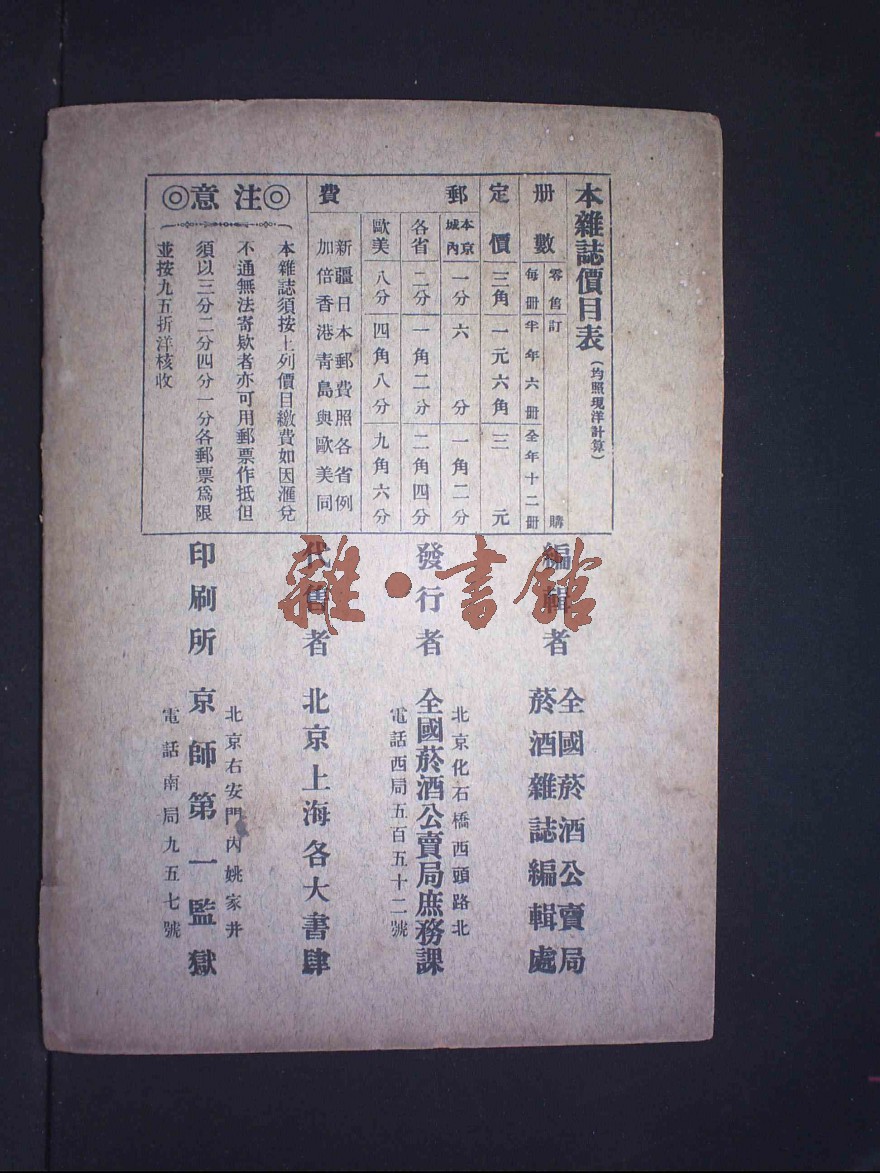 本雜誌價目表（均照現洋計算）
册數
零售訂購
每册
半年六册
全年十二册
定價
三角
一元六角
三元
郵費
本京城內
一分
六分
一角二分
各省
二分
一角二分
二角四分
歐美
八分
四角八分
九角六分
新疆日本郵費照各省例
加倍香港靑島與歐美同
◎注意◎
本雜誌須按上列價目繳費如因滙兌
不通無法寄欵者亦可用郵票作抵但
須以三分二分四分一分各郵票爲限
並按九五折洋核收
編輯者
全國菸酒公賣局
菸酒雜誌編輯處
發行者
北京化石橋西頭路北
全國菸酒公賣局庶務課
電話西局五百五十二號
代售者
北京上海各大書肆
印刷所
北京右安門內姚家井
京師第一監獄
電話南局九五七號
雜·書館